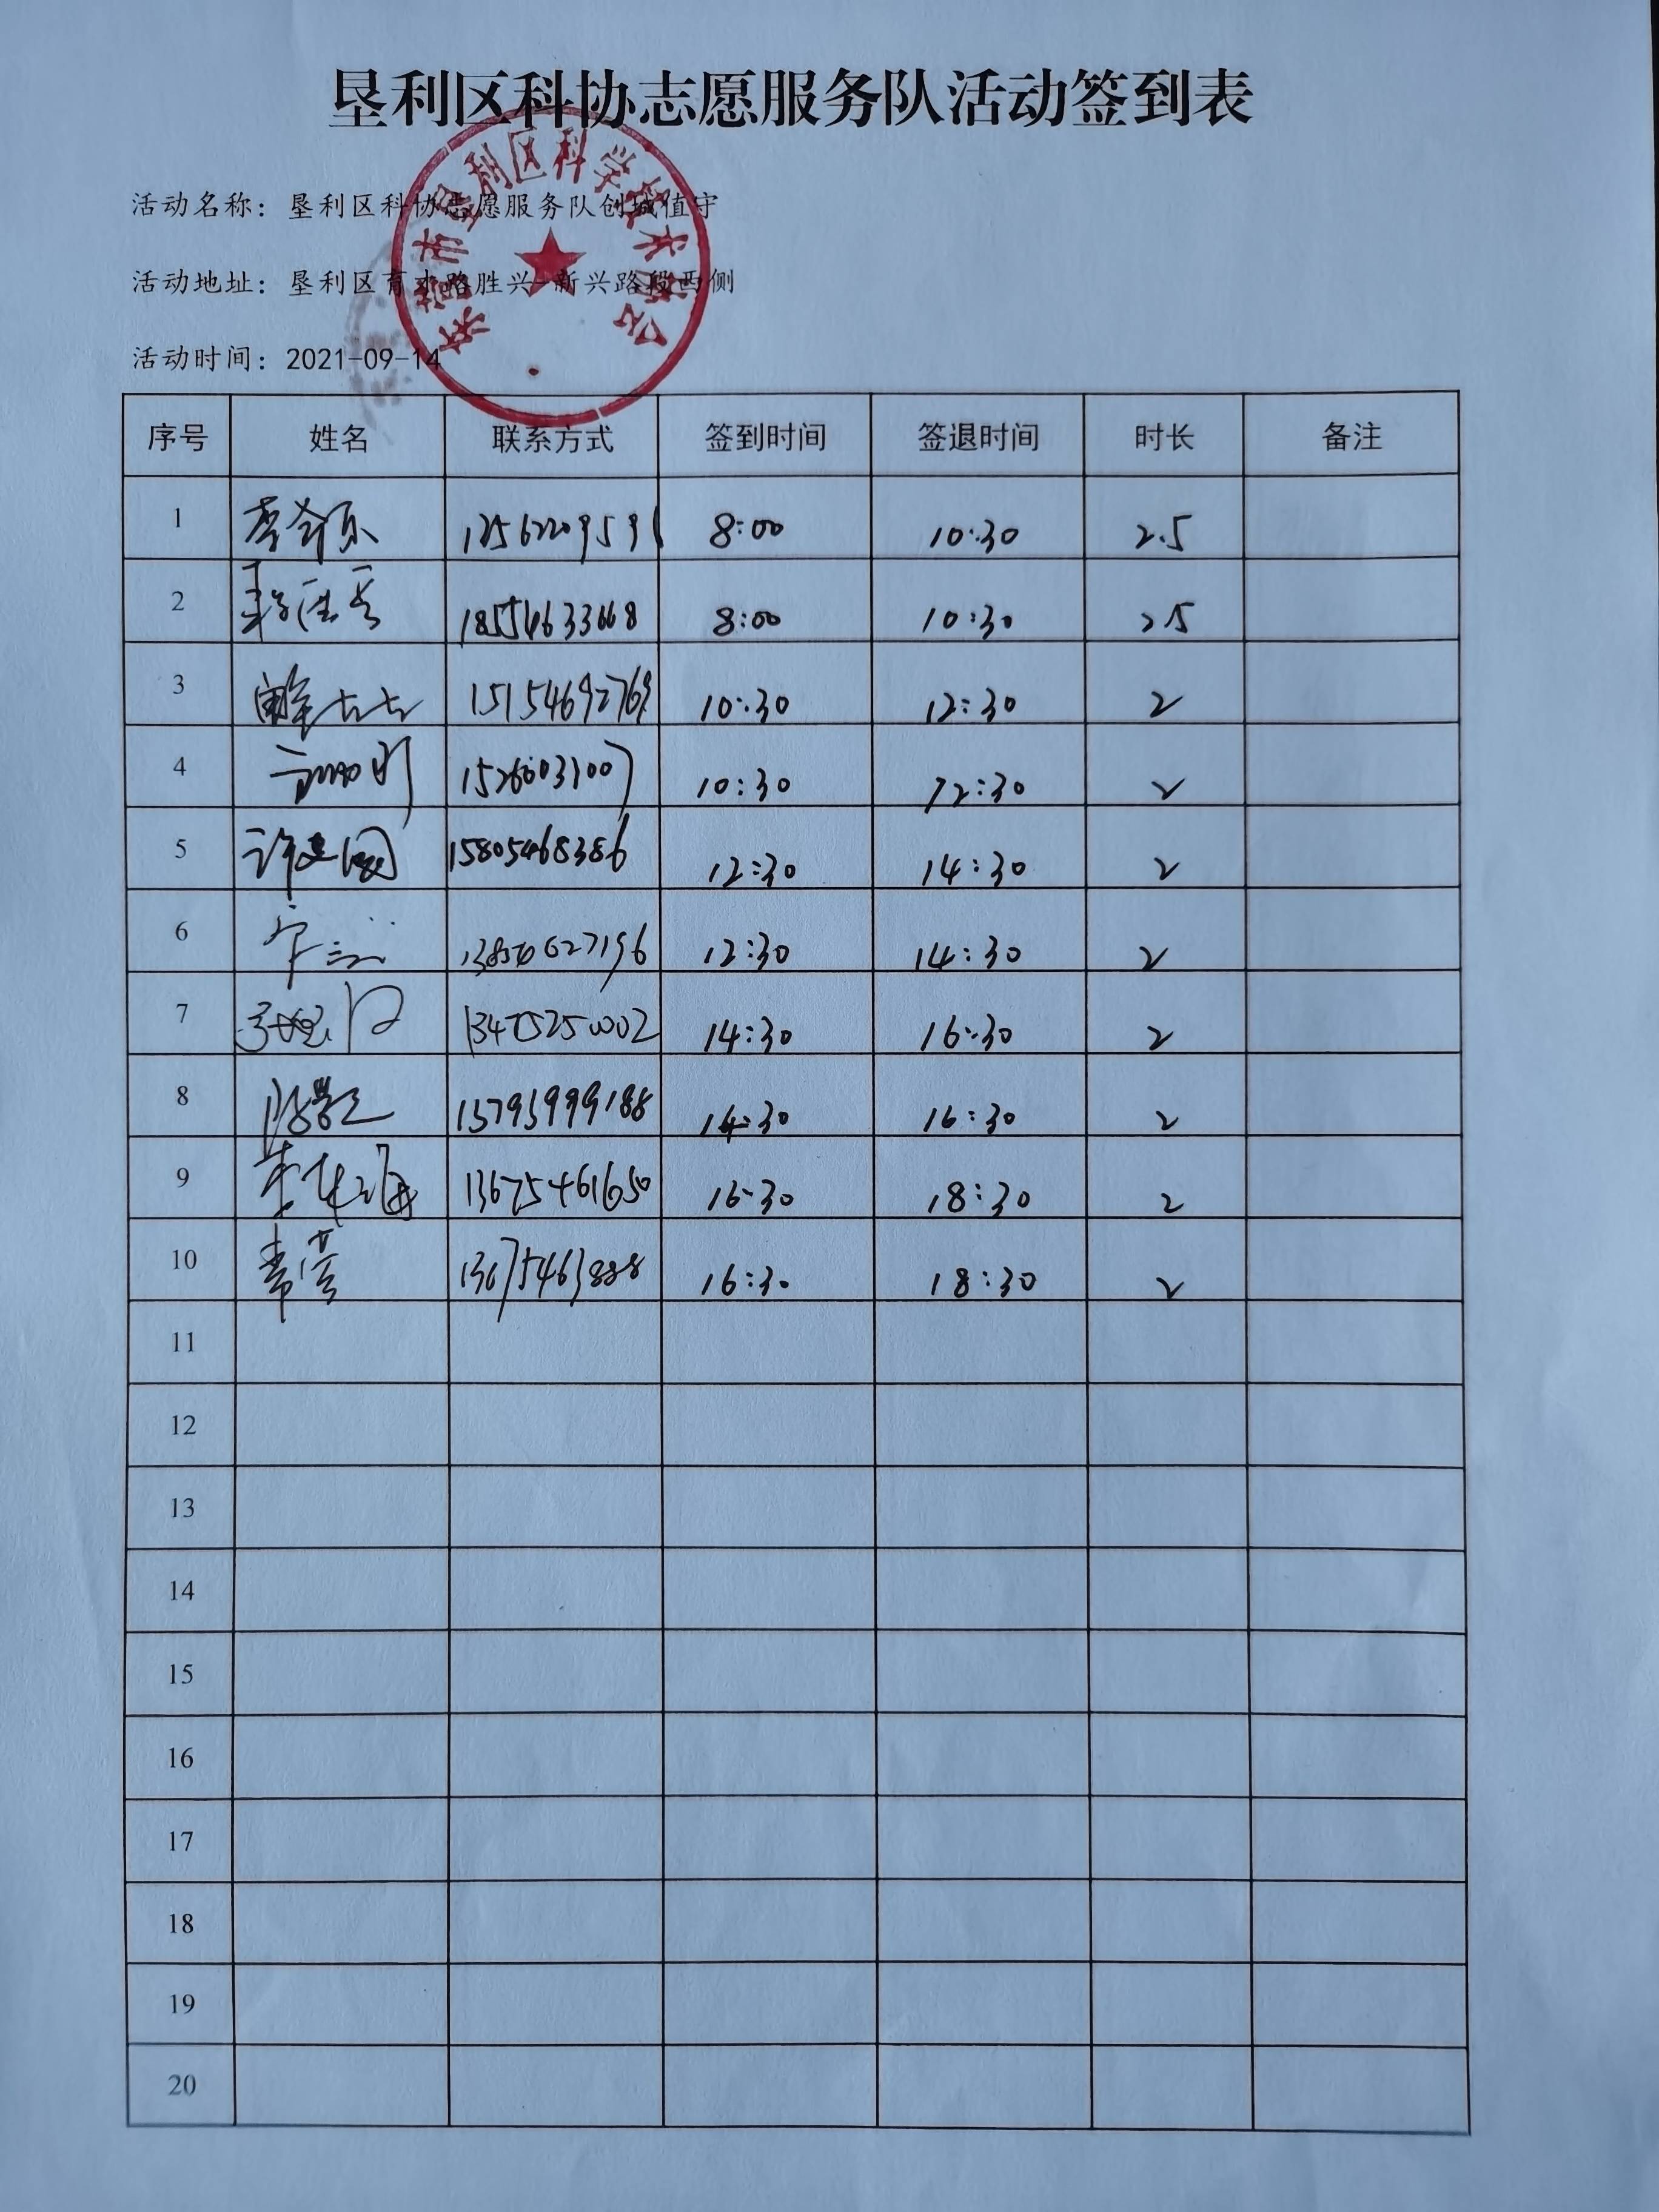 垦利区科协志愿服务队活动签到表
东营市垦利区科学技术协会
活动名称：垦利区科协志愿服务队创城值守
活动地址：垦利区育才路胜兴-新兴路段西侧
活动时间：2021-09-14
序号 姓名 联系方式 签到时间 签退时间 时长 备注
1 8:00 10:30 2.5
2 18554633668 8:00 10:30 2.5
3 15154692769 10:30 12:30 2
4 10:30 12:30 2
5 许建国 15805468386 12:30 14:30 2
6 12:30 14:30 2
7 13475250002 14:30 16:30 2
8 14:30 16:30 2
9 13675461650 16:30 18:30 2
10 常莹 13675463888 16:30 18:30 2
11
12
13
14
15
16
17
18
19
20